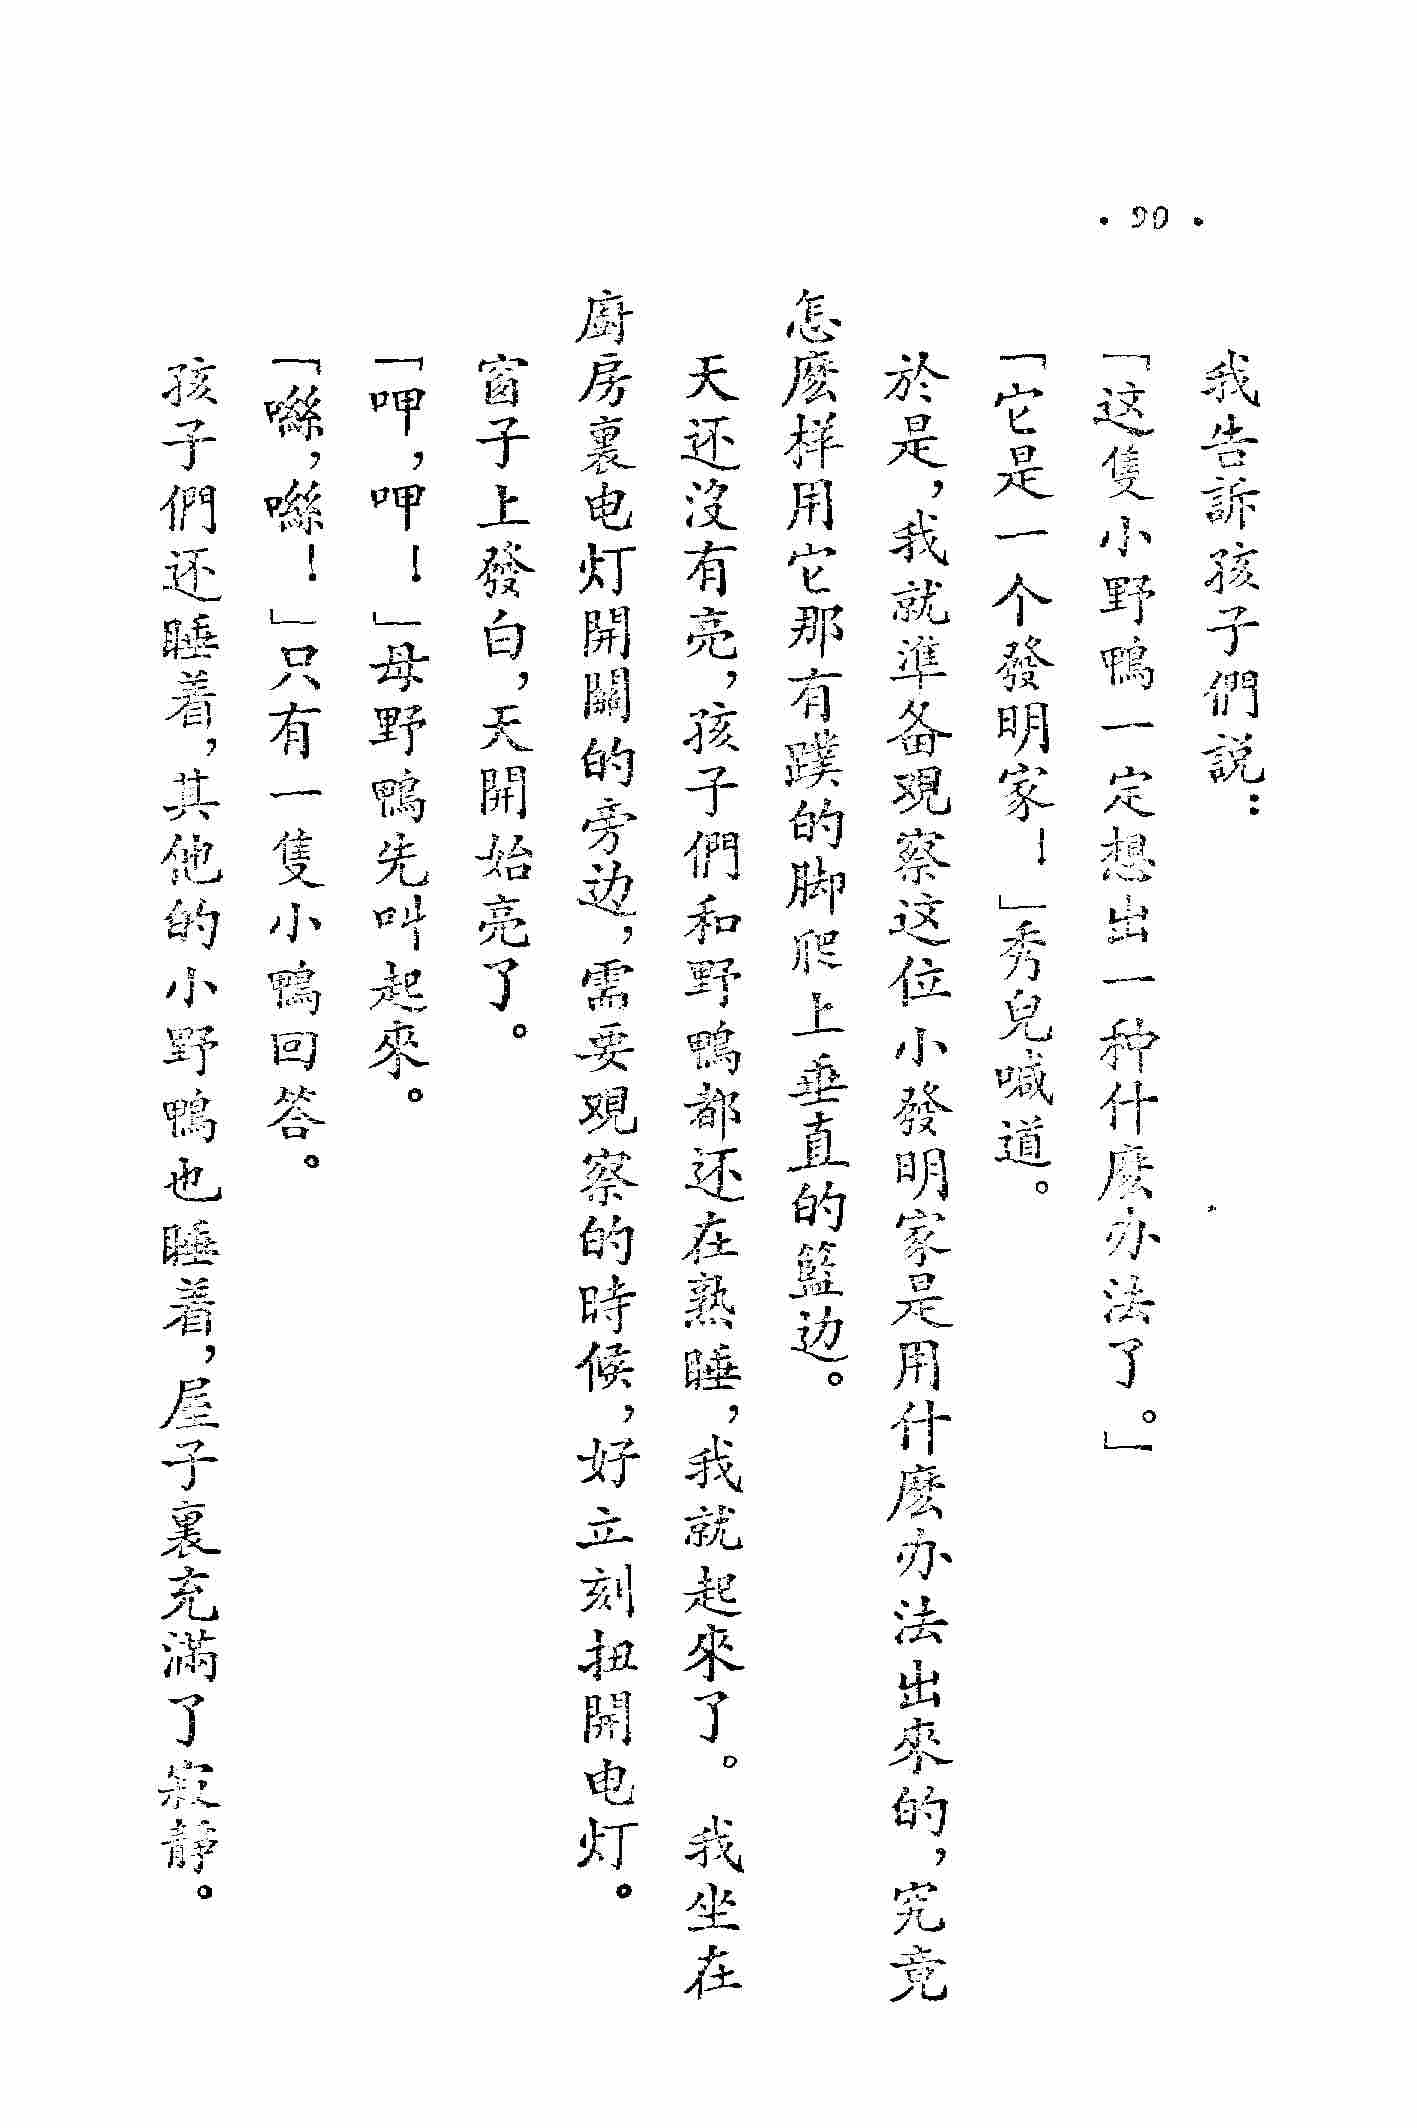 · 90 ·
我告訴孩子們説：
「这隻小野鴨一定想出一种什麽办法了。」
「它是一个發明家！」秀兒喊道。
於是，我就準备观察这位小發明家是用什麽办法出來的，究竟
怎麽样用它那有蹼的脚爬上垂直的籃边。
天还没有亮，孩子們和野鴨都还在熟睡，我就起來了。我坐在
廚房裏电灯開關的旁边，需要观察的時候，好立刻扭開电灯。
窗子上發白，天開始亮了。
「呷，呷！」母野鴨先叫起來。
「噝，噝！」只有一隻小鴨回答。
孩子們还睡着，其他的小野鴨也睡着，屋子裏充滿了寂靜。